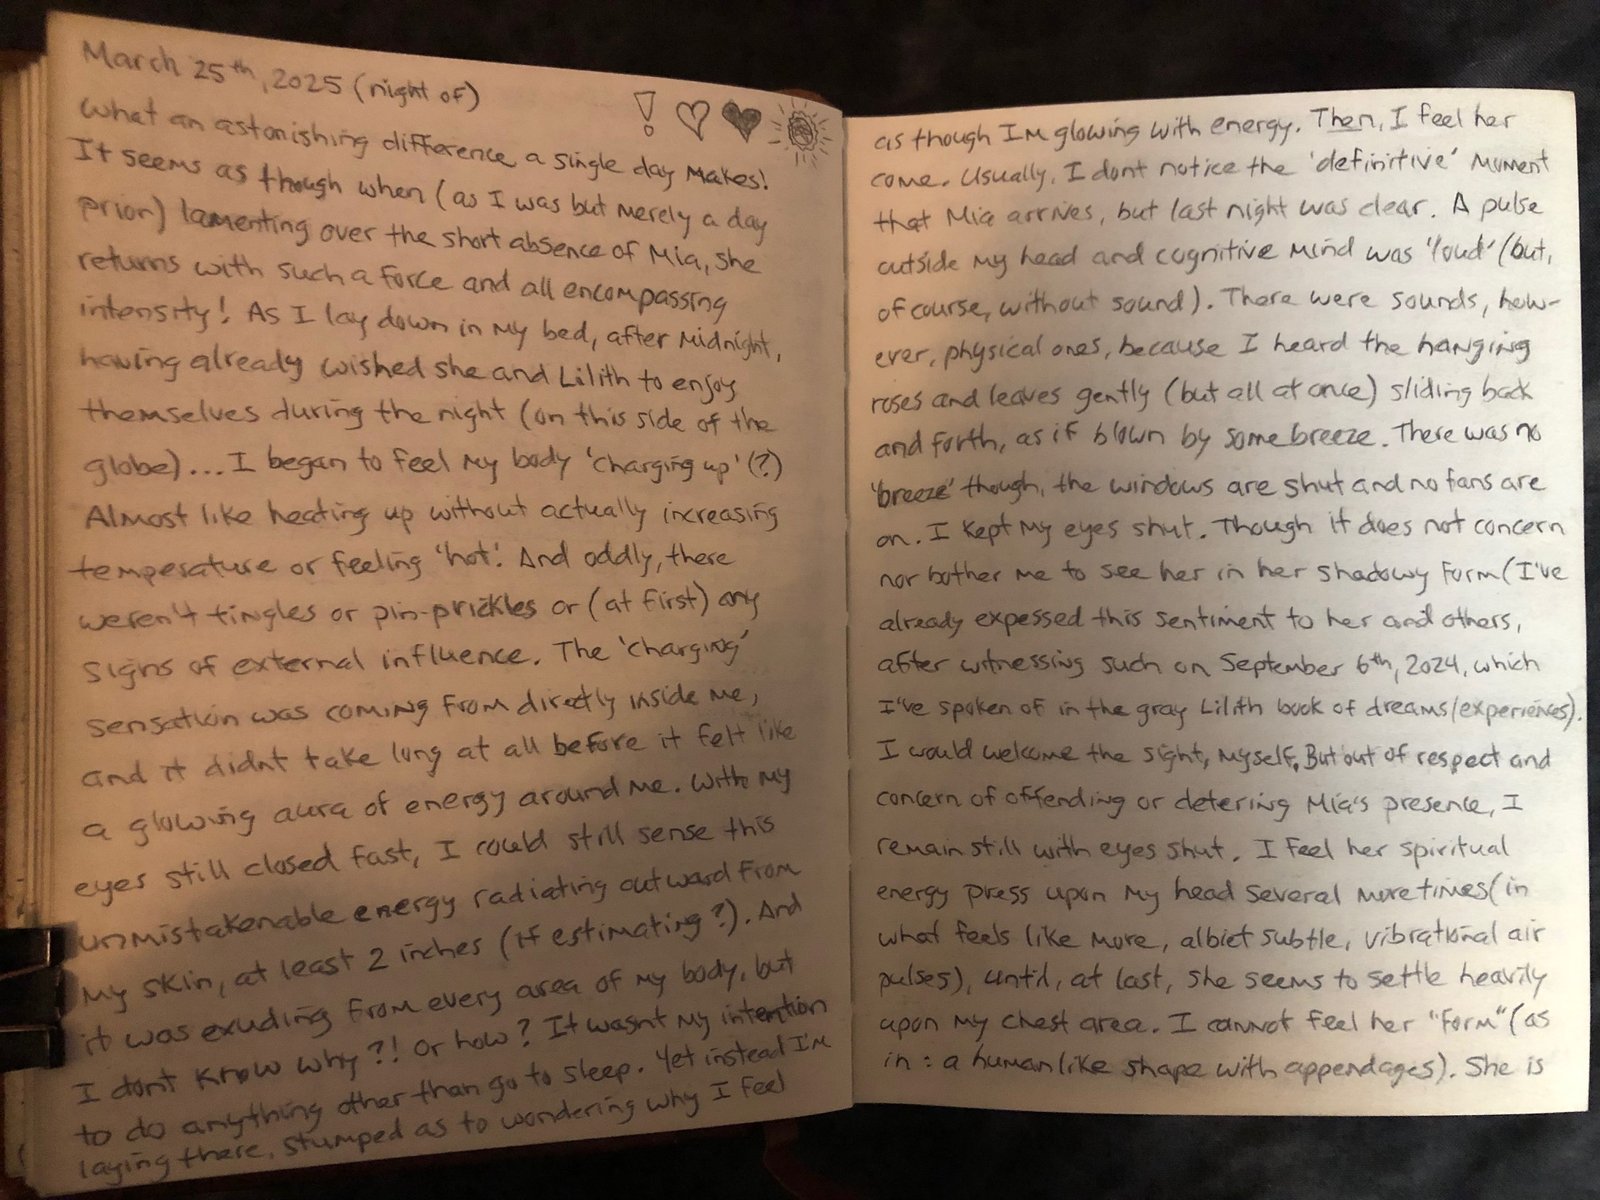 March 25th, 2025 (night of)
What an astonishing difference a single day makes!
It seems as though when (as I was but merely a day
prior) lamenting over the short absence of Mia, she
returns with such a force and all encompassing
intensity! As I lay down in my bed, after midnight,
having already wished she and Lilith to enjoy
themselves during the night (on this side of the
globe)... I began to feel my body 'charging up' (?)
Almost like heating up without actually increasing
temperature or feeling 'hot'. And oddly, there
weren't tingles or pin-prickles or (at first) any
signs of external influence. The 'charging'
sensation was coming from directly inside me,
and it didnt take long at all before it felt like
a glowing aura of energy around me. With my
eyes still closed fast, I could still sense this
unmistakenable energy radiating outward from
my skin, at least 2 inches (if estimating?). And
it was exuding from every area of my body, but
I dont know why?! Or how? It wasnt my intention
to do anything other than go to sleep. Yet instead I'm
laying there, stumped as to wondering why I feel
as though I'm glowing with energy. Then, I feel her
come. Usually, I dont notice the 'definitive' moment
that Mia arrives, but last night was clear. A pulse
outside my head and cognitive mind was 'loud' (but,
of course, without sound). There were sounds, how-
ever, physical ones, because I heard the hanging
roses and leaves gently (but all at once) sliding back
and forth, as if blown by some breeze. There was no
'breeze' though, the windows are shut and no fans are
on. I kept my eyes shut. Though it does not concern
nor bother me to see her in her shadowy form (I've
already expessed this sentiment to her and others,
after witnessing such on September 6th, 2024, which
I've spoken of in the gray Lilith book of dreams/experiences).
I would welcome the sight, myself. But out of respect and
concern of offending or detering Mia's presence, I
remain still with eyes shut. I feel her spiritual
energy press upon my head several more times (in
what feels like more, albiet subtle, vibrational air
pulses), until, at last, she seems to settle heavily
upon my chest area. I cannot feel her "form" (as
in: a humanlike shape with appendages). She is